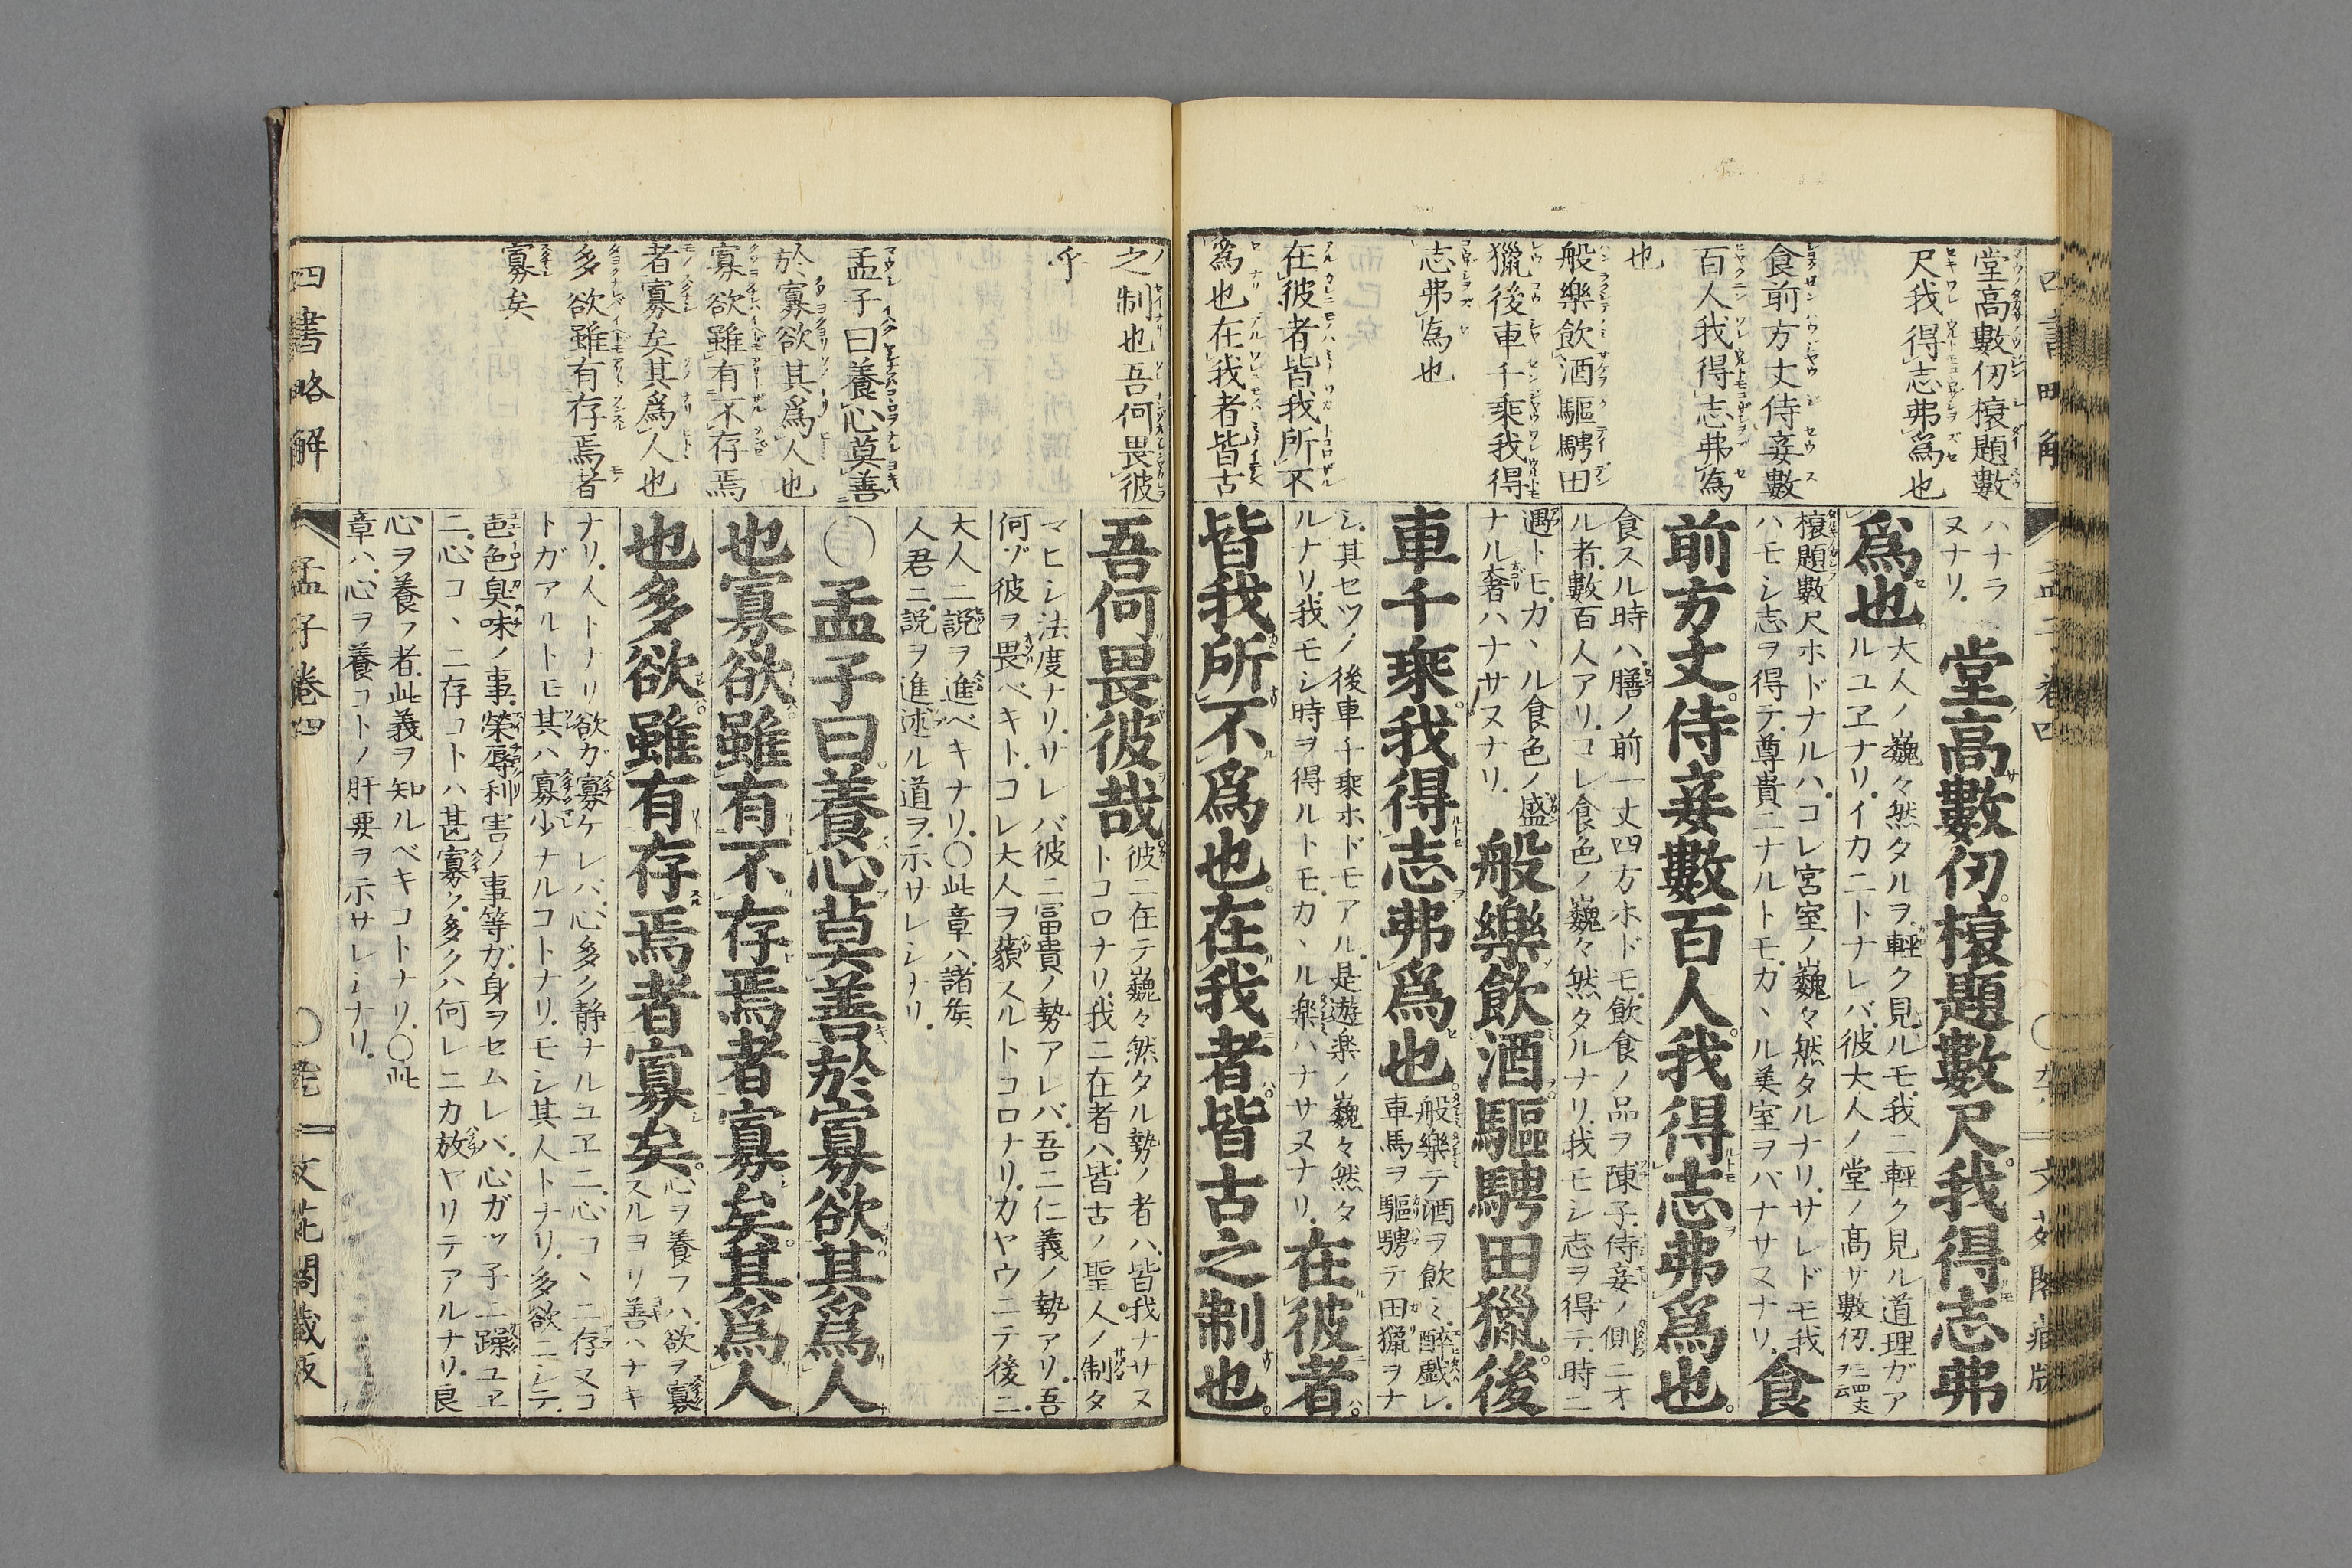 四書略解
孟子卷四
堂高數仞榱題數
尺我得志弗爲也
食前方丈侍妾數
百人我得志弗爲
也
般樂飲酒驅騁田
獵後車千乘我得
志弗爲也
在彼者皆我所不
爲也在我者皆古
ハナラ
ヌナリ.
堂高數仞榱題數尺我得志弗
爲也
大人ノ巍々然タルヲ.輕ク見ルモ.我ニ輕ク見ル道理ガア
ルユヱナリ.イカニトナレバ.彼大人ノ堂ノ高サ數仞.
榱題數尺ホドナルハ.コレ宮室ノ巍々然タルナリ.サレドモ我
ハモシ志ヲ得テ.尊貴ニナルトモ.カヽル美室ヲバナサヌナリ.
食
前方丈侍妾數百人我得志弗爲也
食スル時ハ.膳ノ前一丈四方ホドモ.飲食ノ品ヲ陳子.侍妾ノ側ニオ
ル者.數百人アリ.コレ食色ノ巍々然タルナリ.我モシ志ヲ得テ.時ニ
遇トモ.カヽル食色ノ盛
ナル奢ハナサヌナリ.
般樂飲酒驅騁田獵後
車千乘我得志弗爲也
般樂テ酒ヲ飲ミ.醉戲レ.
車馬ヲ驅騁テ田獵ヲナ
シ.其セツノ後車千乘ホドモアル.是遊楽ノ巍々然タ
ルナリ.我モシ時ヲ得ルトモ.カヽル楽ハナサヌナリ.
在彼者
皆我所不爲也在我者皆古之制也
之制也吾何畏彼
乎
孟子曰養心莫善
於寡欲其爲人也
寡欲雖有不存焉
者寡矣其爲人也
多欲雖有存焉者
寡矣
吾何畏彼哉
彼ニ在テ巍々然タル勢ノ者ハ.皆我ナサヌ
トコロナリ.我ニ在者ハ.皆古ノ聖人ノ制タ
マヒシ法度ナリ.サレバ彼ニ冨貴ノ勢アレバ.吾ニ仁義ノ勢アリ.吾
何ゾ彼ヲ畏ベキト.コレ大人ヲ藐スルトコロナリ.カヤウニテ後ニ.
大人ニ説ヲ進ベキナリ.〇此章ハ.諸矦
人君ニ説ヲ進述ル道ヲ.示サレシナリ.
〇孟子曰養心莫善於寡欲其爲人
也寡欲雖有不存焉者寡矣其爲人
也多欲雖有存焉者寡矣
心ヲ養フハ.欲ヲ寡
スルヨリ善ハナキ
ナリ.人トナリ欲ガ寡ケレバ.心多ク静ナルユヱニ.心コヽニ存ヌコ
トガアルトモ其ハ寡少ナルコトナリ.モシ其人トナリ.多欲ニシテ.
邑色臭味ノ事.榮辱利害ノ事等ガ.身ヲセムレバ.心ガツ子ニ躁ユヱ
ニ.心コヽニ存コトハ甚寡ク.多クハ何レニカ放ヤリテアルナリ.良
心ヲ養フ者.此義ヲ知ルベキコトナリ.〇此
章ハ.心ヲ養コトノ肝要ヲ示サレシナリ.
四書略解
孟子卷四
文花閣藏版